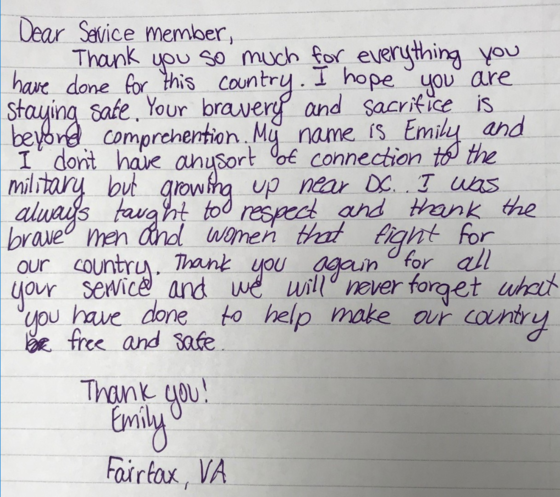 Dear Service member,
Thank you so much for everything you
have done for this country. I hope you are
staying safe. Your bravery and sacrifice is
beyond comprehention. My name is Emily and
I don't have anysort of connection to the
military but growing up near DC. I was
always taught to respect and thank the
brave men and women that fight for
our country. Thank you again for all
your service and we will never forget what
you have done to help make our country
be free and safe.
Thank you!
Emily
Fairfax, VA